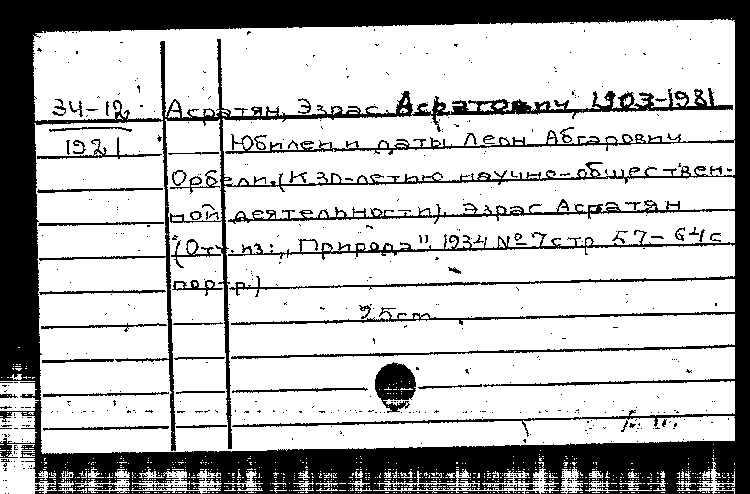 34-12 Асратян, Эзрас Асратович, 1903-1981
1921 Юбилеи и даты. Леон Абгарович
Орбели. (К 30-летию научно-обществен-
ной деятельности). Эзрас Асратян
(Отт. из: „Природа". 1934 № 7 стр. 57-64 с
портр.)
25cm